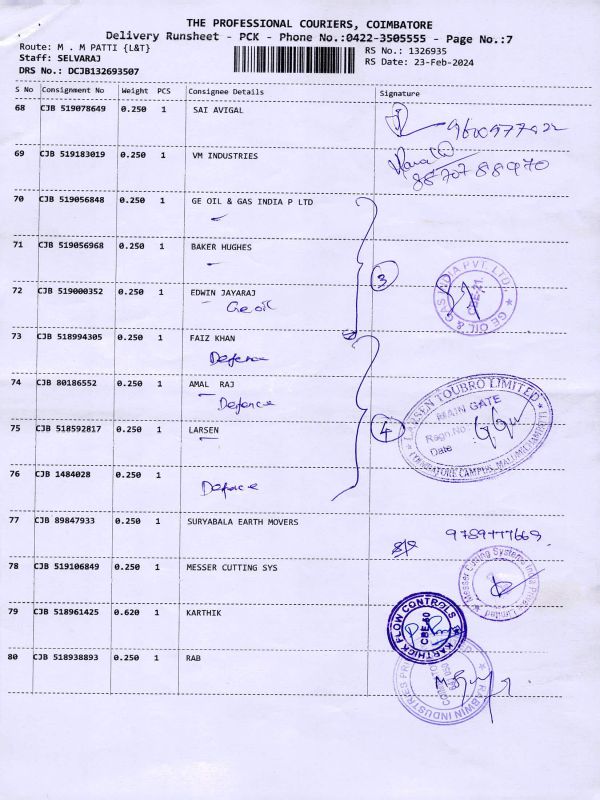 THE PROFESSIONAL COURIERS, COIMBATORE
Delivery Runsheet - PCK - Phone No.:0422-3505555 - Page No.:7
Route: M . M PATTI {L&T}
RS No.: 1326935
Staff: SELVARAJ
RS Date: 23-Feb-2024
DRS No.: DCJB132693507
S No Consignment No Weight PCS Consignee Details Signature
68 CJB 519078649 0.250 1 SAI AVIGAL
69 CJB 519183019 0.250 1 VM INDUSTRIES
88707 88970
70 CJB 519056848 0.250 1 GE OIL & GAS INDIA P LTD
71 CJB 519056968 0.250 1 BAKER HUGHES
3
GE OIL & GAS INDIA PVT. LTD.
CBE-21
72 CJB 519000352 0.250 1 EDWIN JAYARAJ
Ge oil
73 CJB 518994305 0.250 1 FAIZ KHAN
Defence
74 CJB 80186552 0.250 1 AMAL RAJ
Defence
75 CJB 518592817 0.250 1 LARSEN
4
LARSEN TOUBRO LIMITED
MAIN GATE
Regn.No
Date
COIMBATORE CAMPUS, MALUMICHAMPATTI
76 CJB 1484028 0.250 1
Defence
77 CJB 89847933 0.250 1 SURYABALA EARTH MOVERS
9789777669
78 CJB 519106849 0.250 1 MESSER CUTTING SYS
Messer Cutting Systems India Private Limited
79 CJB 518961425 0.620 1 KARTHIK
KARTHICK FLOW CONTROLS
CBE-50
80 CJB 518938893 0.250 1 RAB
RABWIN INDUSTRIES